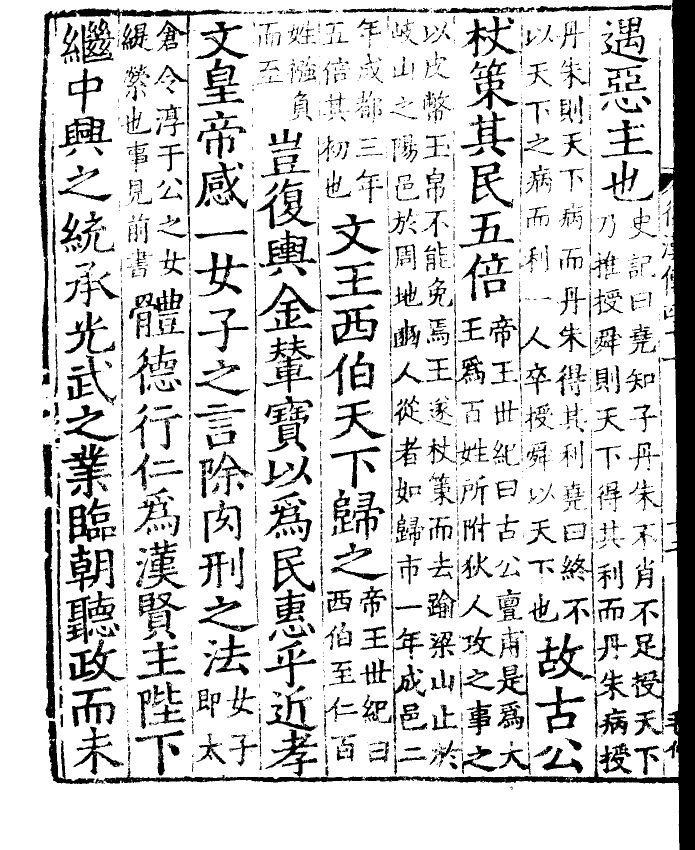 遇惡主也史記曰堯知子丹朱不肖不足授天下
乃推授舜則天下得其利而丹朱病授
丹朱則天下病而丹朱得其利堯曰終不
以天下之病而利一人卒授舜以天下也故古公
杖策其民五倍帝王世紀曰古公亶甫是爲大
王爲百姓所附狄人攻之事之
以皮幣王帛不能免焉王遂杖策而去踰梁山止於
岐山之陽邑於周地豳人從者如歸市一年成邑二
年成都三年
五倍其初也文王西伯天下歸之帝王世紀曰
西伯至仁百
姓襁負
而至豈復輿金輦寶以爲民惠乎近孝
文皇帝感一女子之言除肉刑之法女子
即太
倉令淳于公之女
緹縈也事見前書體德行仁爲漢賢主陛下
繼中興之統承光武之業臨朝聽政而未